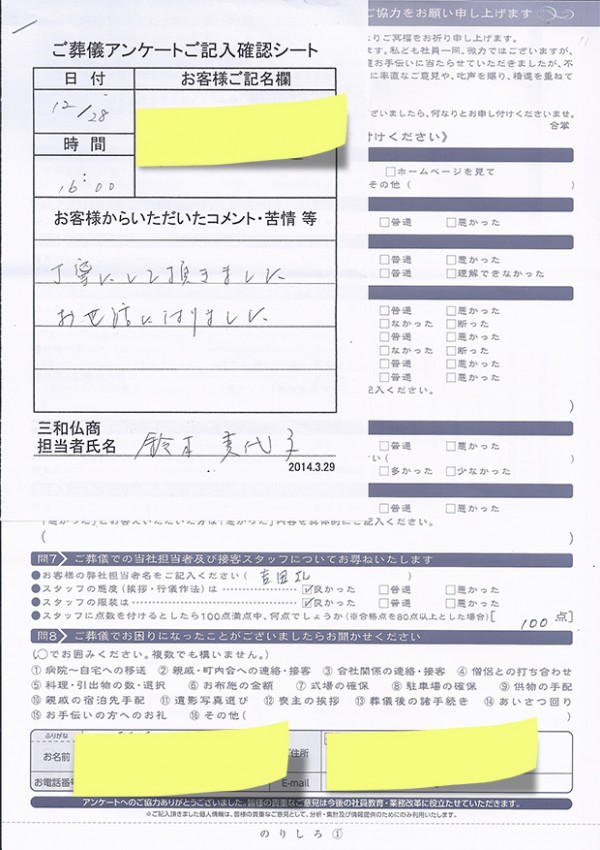 ご協力をお願い申し上げます
ご葬儀アンケートご記入確認シート
日付
お客様ご記名欄
12/28
時間
16:00
お客様からいただいたコメント・苦情 等
丁寧にして頂きました
お世話になりました
三和仏商
担当者氏名
鈴木 美代子
2014.3.29
りご冥福をお祈り申し上げます。
す。私ども社員一同、微力ではございますが、
お手伝いに当たらせていただきましたが、不
に率直なご意見や、叱声を賜り、積進を重ねて
ざいましたら、何なりとお申し付けくださいませ。
合掌
付けください》
□ホームページを見て
その他(
)
□普通 □悪かった
□普通 □悪かった
□普通 □理解できなかった
□普通 □悪かった
□なかった □断った
□普通 □悪かった
□なかった □断った
□普通 □悪かった
□普通 □悪かった
記入ください。
)
□普通 □悪かった
い(
□多かった □少なかった
□普通 □悪かった
「悪かった」とお答えいただいた方は「悪かった」内容を具体的にご記入ください。
( )
問7 ご葬儀での当社担当者及び接客スタッフについてお尋ねいたします
●お客様の弊社担当者名をご記入ください( 吉田 )
●スタッフの態度(挨拶・行儀作法)は ☑良かった □普通 □悪かった
●スタッフの服装は ☑良かった □普通 □悪かった
●スタッフに点数を付けるとしたら100点満点中、何点でしょうか(※合格点を80点以上とした場合)[ 100 点]
問8 ご葬儀でお困りになったことがございましたらお聞かせください
(○でお囲みください。複数でも構いません。)
①病院〜自宅への移送 ②親戚・町内会への連絡・接客 ③会社関係の連絡・接客 ④僧侶との打ち合わせ
⑤料理・引出物の数・選択 ⑥お布施の金額 ⑦式場の確保 ⑧駐車場の確保 ⑨供物の手配
⑩親戚の宿泊先手配 ⑪遺影写真選び ⑫喪主の挨拶 ⑬葬儀後の諸手続き ⑭あいさつ回り
⑮お手伝いの方へのお礼 ⑯その他( )
ふりがな
お名前
ご住所
お電話番号
E-mail
アンケートへのご協力ありがとうございました。皆様の貴重なご意見は今後の社員教育・業務改革に役立たせていただきます。
※ご記入頂きました個人情報は、皆様の貴重なご意見として、分析・集計及び情報提供のためにのみ利用いたします。
のりしろ①